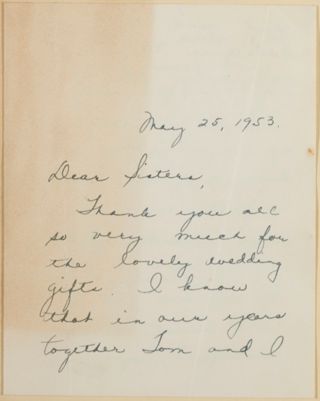 May 25, 1953.
Dear Sisters,
Thank you all
so very much for
the lovely wedding
gifts. I know
that in our years
together Tom and I